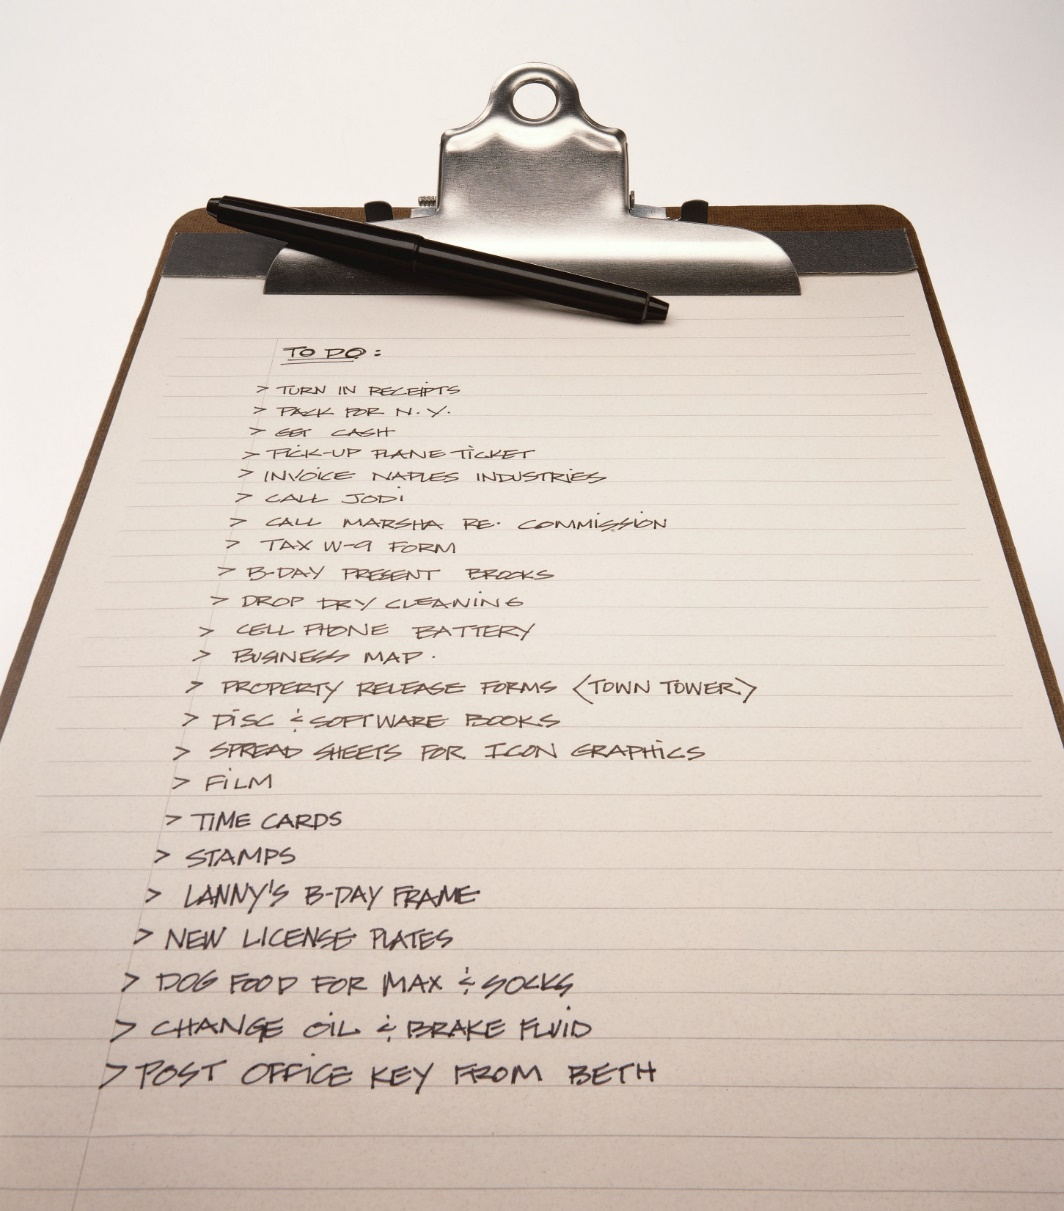 TO DO:
> TURN IN RECEIPTS
> PACK FOR N.Y.
> GET CASH
> PICK-UP PLANE TICKET
> INVOICE NAPLES INDUSTRIES
> CALL JODI
> CALL MARSHA RE. COMMISSION
> TAX W-9 FORM
> B-DAY PRESENT BROOKS
> DROP DRY CLEANING
> CELL PHONE BATTERY
> BUSINESS MAP.
> PROPERTY RELEASE FORMS <TOWN TOWER>
> DISC & SOFTWARE BOOKS
> SPREAD SHEETS FOR ICON GRAPHICS
> FILM
> TIME CARDS
> STAMPS
> LANNY'S B-DAY FRAME
> NEW LICENSE PLATES
> DOG FOOD FOR MAX & SOCKS
> CHANGE OIL & BRAKE FLUID
> POST OFFICE KEY FROM BETH